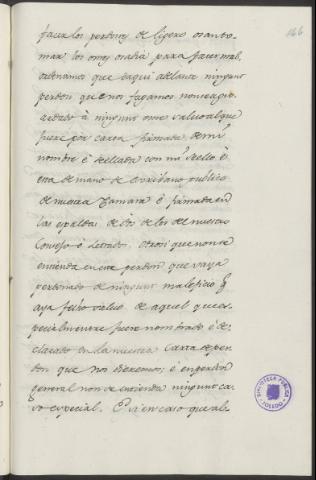 166
facer los perdones de ligero osan to-
mar los omes osadia para facer mal,
ordenamos que daqui adelante ningunt
perdon que nos fagamos non sea guar-
dado à ningunt ome salvo al que
fuere por carta firmada de mi
nombre è sellada con mi sello è
escrita de mano de escribano publico
de nuestra Camara è firmada en
las espaldas de dos de los del nuestro
Consejo è Letrados. Otrosi que non se
entienda en este perdon que vaya
perdonado de ningunt maleficio q
aya fecho salvo de aquel que es-
pecialmente fuere nombrado è de-
clarado en la nuestra Carta de per-
don que nos dieremos; è en perdon
general non se entienda ningunt ca-
so especial. E si en caso que al-
BIBLIOTECA PUBLICA
TOLEDO